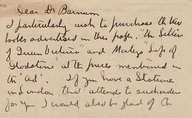 Dear Dr Barnum
I particularly wish to purchase the two
books advertised in this paper. "The Letters
of Queen Victoria" and Morley's "Life of
Gladstone" at the prices mentioned in
the "ad". If you have a Stationer
in London that attends to such orders
for you I would also be glad if the